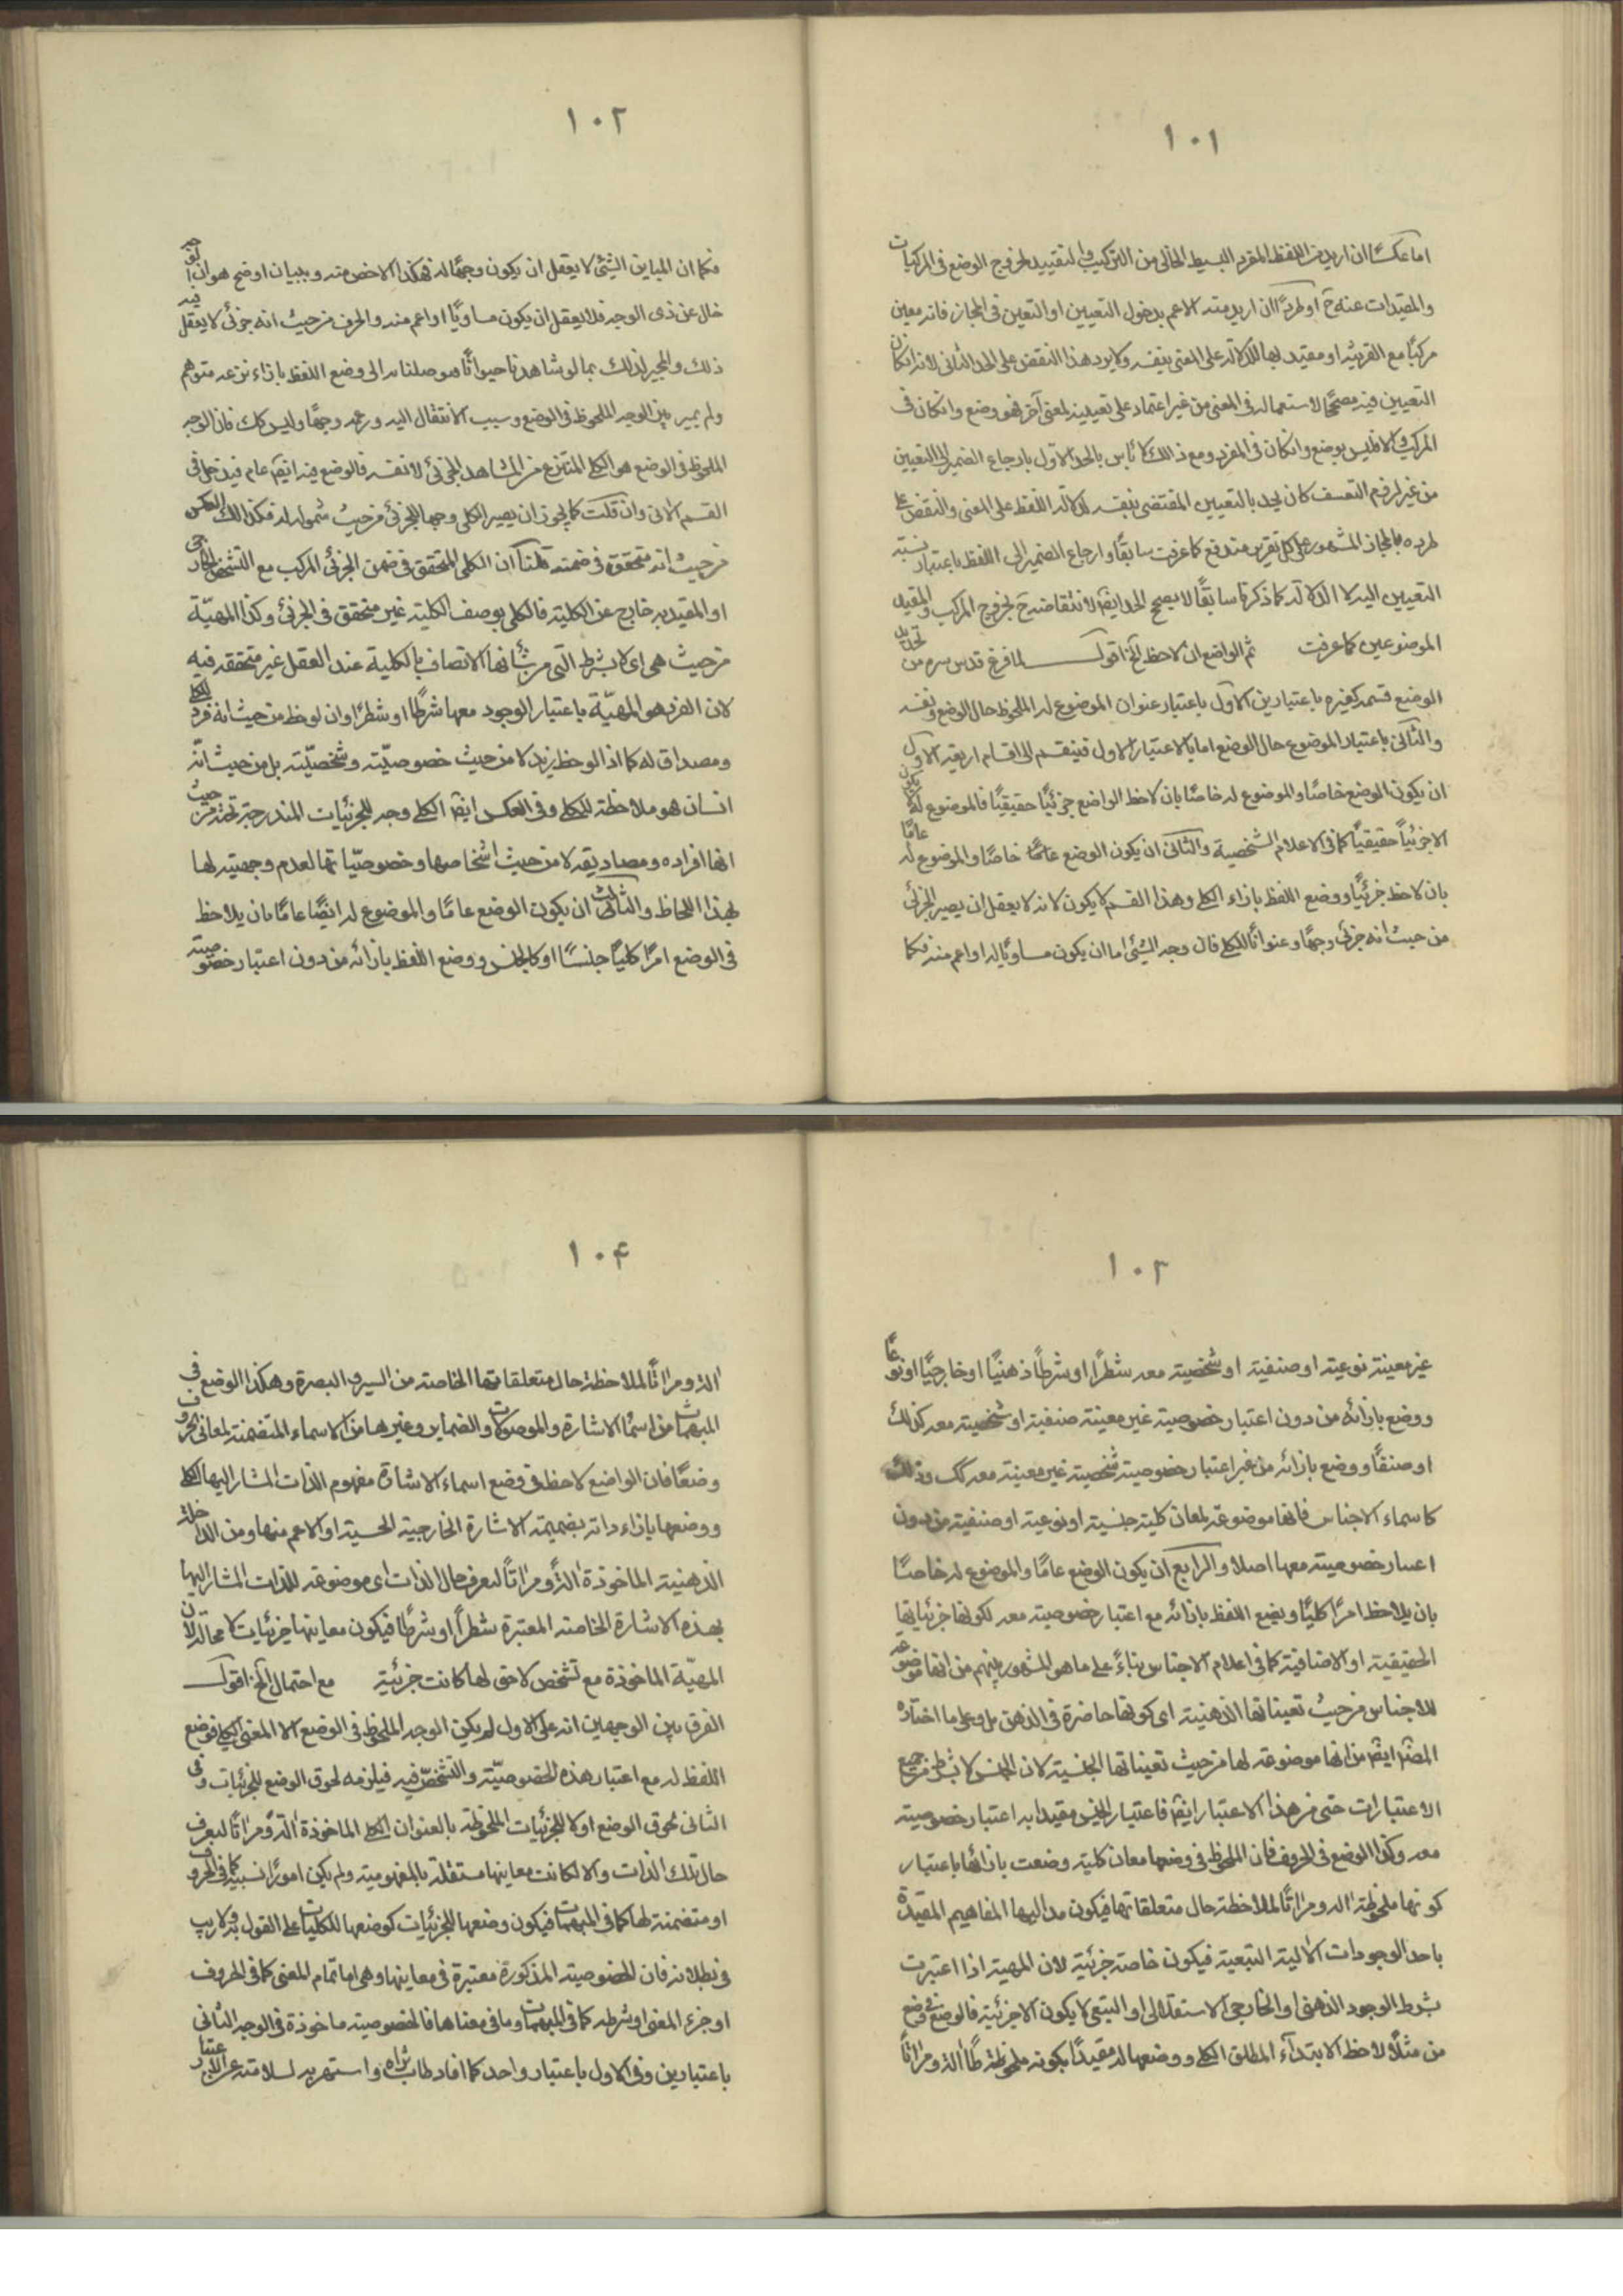 ١٠١
اما عكسًا ان اريد من اللفظ المفرد البسيط الخالى من التركيب والتقييد لخروج الوضع فى المركبات
والمقيدات عنه ح او طردًا ان اريد منه الاعم بدخول التعيين او التعين فى المجاز فانه معين
مركبًا مع القرينه او مقيد بها للدلالة على المعنى بنفسه ولا يرد هذا النقض على الحد الثانى لانه ان كان
التعيين فيه مصححًا لاستعماله فى المعنى من غير اعتماد على تعيينه لمعنى آخر فهو وضع وان كان فى
المركب والا فليس بوضع وان كان فى المفرد ومع ذالك لا بأس بالحد الاول بارجاع الضمير الى التعيين
من غير لزوم التعسف كان يحد بالتعيين المقتضى بنفسه لدلالة اللفظ على المعنى والنقض على
طرده بالمجاز المشهور على كل تقرير مندفع كما عرفت سابقًا وارجاع الضمير الى اللفظ باعتبار نسبته
التعيين اليه لا الدلالة كما ذكرنا سابقًا لا يصح الحد ايضا لانتقاضه ح لخروج المركب والمقيد
الموضوعين كما عرفت ثم الواضع ان لاحظ آلخ اقول لما فرغ قدس سره من تحديد
الوضع قسمه كغيره باعتبارين الاول باعتبار عنوان الموضوع له الملحوظ حال الوضع ونفسه
والثانى باعتبار الموضوع حال الوضع اما بالاعتبار الاول فينقسم الى اقسام اربعة الاول
ان يكون الوضع خاصًا والموضوع له خاصًا بان لاحظ الواضع جزئيًا حقيقيًا فالموضوع له لا يكون
الا جزئياً حقيقيًا كما فى الاعلام الشخصية والثانى ان يكون الوضع خاصًا والموضوع له عامًا
بان لاحظ جزئيًا ووضع اللفظ بازاء الكلى وهذا القسم لا يكون لانه لا يعقل ان يصير الجزئى
من حيث انه جزئى وجهًا وعنوانًا للكلى فان وجه الشيئ اما ان يكون مساويًا له او اعم منه فكما
١٠٢
فكما ان المباين الشيئ لا يعقل ان يكون وجهًا له فهكذا الاخص منه وببيان اوضح هو ان الوجه
خال عن ذى الوجه فلا يعقل ان يكون مساويًا او اعم منه والحرف من حيث انه جزئى لا يعقل فيه
ذلك والمجيز لذلك بما لو شاهدنا حيوانًا فوصلنا منه الى وضع اللفظ بازاء نوعه متوهم
ولم يميز بين الوجه الملحوظ فى الوضع وسبب الانتقال اليه وزعمه وجهًا وليس كك فان الوجه
الملحوظ فى الوضع هو الكلى المنتزع من المشاهد الجزئى لا نفسه فالوضع فيه ايضا عام فيدخل فى
القسم الاتى وان قلت كما يجوز ان يصير الكلى وجها للجزئى من حيث شموله له فكذالك العكس
من حيث انه متحقق فى ضمنه قلنا ان الكلى المتحقق فى ضمن الجزئى المركب مع التشخص الخارجى
او المقيد به خارج عن الكلية فالكلى بوصف الكلية غير متحقق فى الجزئى وكذا المهيّة
من حيث هى اى لا بشرط التى من شأنها الاتصاف بالكلية عند العقل غير متحققه فيه
لان الفرد هو المهيّة باعتبار الوجود معها شرطًا او شطرًا وان لوحظ من حيث انه فرد للكلى
ومصداق له كما اذا لوحظ زيد لا من حيث خصوصيّته وشخصيّته بل من حيث انّه
انسان هو ملاحظة للكلى وفى العكس ايضا الكلى وجه للجزئيات المندرجة تحته من حيث
انها افراده ومصاديقه لا من حيث اشخاصها وخصوصيّاتها لعدم وجهيته لها
بهذا اللحاظ والثالث ان يكون الوضع عامًا والموضوع له ايضًا عامًا بان يلاحظ
فى الوضع امرًا كليًا جنسًا او كالجنس ووضع اللفظ بازائه من دون اعتبار خصوصيته
١٠٣
غير معينة نوعيته او صنفية او شخصيته معه شطرًا او شرطًا ذهنيًا او خارجيًا او نوعًا
ووضع بازائه من دون اعتبار خصوصية غير معينة صنفية او شخصية معه كذلك
او صنفًا ووضع بازائه من غير اعتبار خصوصية شخصية غير معينة معه كك وذلك
كاسماء الاجناس فانها موضوعة لمعان كلية جنسية او نوعية او صنفية من دون
اعتبار خصوصيته معها اصلا والرابع ان يكون الوضع عامًا والموضوع له خاصًا
بان يلاحظ امرًا كليًا ويضع اللفظ بازائه مع اعتبار خصوصيته معه لكونها جزئياتها
الحقيقية او الاضافية كما فى اعلام الاجناس بناءً على ما هو المشهور بينهم من انها موضوعه
للاجناس من حيث تعيناتها الذهنية اى كونها حاضرة فى الذهن بل وعلى ما اختاره
المصنف ايضا من انها موضوعة لها من حيث تعيناتها الجنسية لان الجنس لا بشرط من جميع
الاعتبارات حتى من هذا الاعتبار ايضا فاعتبار الجنس مقيدا به اعتبار خصوصيته
معه وكذا الوضع فى الحروف فان الملحوظ فى وضعها معان كلية وضعت بازائها باعتبار
كونها ملحوظة الة ومراتًا لملاحظة حال متعلقاتها فيكون مداليلها المفاهيم المقيدة
باحد الوجودات الالية التبعية فيكون خاصة جزئية لان المهية اذا اعتبرت
بشرط الوجود الذهنى او الخارجى الاستقلالى او التبعى لا يكون الا جزئية فالواضع فى وضع
من مثلًا لاحظ الابتداء المطلق الكلى ووضعها له مقيدًا بكونه ملحوظة الة ومراتًا
١٠۴
الة ومراتًا لملاحظة حال متعلقاتها الخاصة من السير والبصرة وهكذا الوضع فى
المبهمات من اسماء الاشارة والموصولات والضماير وغيرها من الاسماء المتضمنة لمعانى الحروف
وضعًا فان الواضع لاحظ فى وضع اسماء الاشارة مفهوم الذات المشار اليها الكلى
ووضعها بازاء ذاته بضميمة الاشارة الخارجية الحسية او الاعم منها ومن الداخلة
الذهنية الماخوذة الة ومراتًا لتعرف حال الذات اى موضوعة للذات المشار اليها
بهذه الاشارة الخاصة المعتبرة شطراً او شرطًا فيكون معاينها جزئيات لا محالة لان
المهيّة الماخوذة مع تشخص لاحق لها كانت جزئية مع احتمال آلخ اقول
الفرق بين الوجهين انه على الاول لم يكن الوجه الملحوظ فى الوضع الا المعنى الكلى فوضع
اللفظ له مع اعتبار هذه الخصوصيّة والتشخّص فيه فيلزمه لحوق الوضع للجزئيات وفى
الثانى لحوق الوضع اولا للجزئيات الملحوظة بالعنوان الكلى الماخوذة الة ومراتًا لتعرف
حال تلك الذات والا لكانت معاينها مستقلة بالمفهومية ولم يكن امورًا نسبية كما فى الحروف
او متضمنة لها كما فى المبهمات فيكون وضعها للجزئيات كوضعها للكليات على القول به ولا ريب
فى بطلانه فان الخصوصية المذكورة معتبرة فى معاينها وهى اما تمام المعنى كما فى الحروف
او جزء المعنى او شرطه كما فى المبهمات وما فى معناها فالخصوصية ماخوذة فى الوجه الثانى
باعتبارين وفى الاول باعتبار واحد كما افاد طاب ثراه واستمر به لسلامته عن الاعتبار